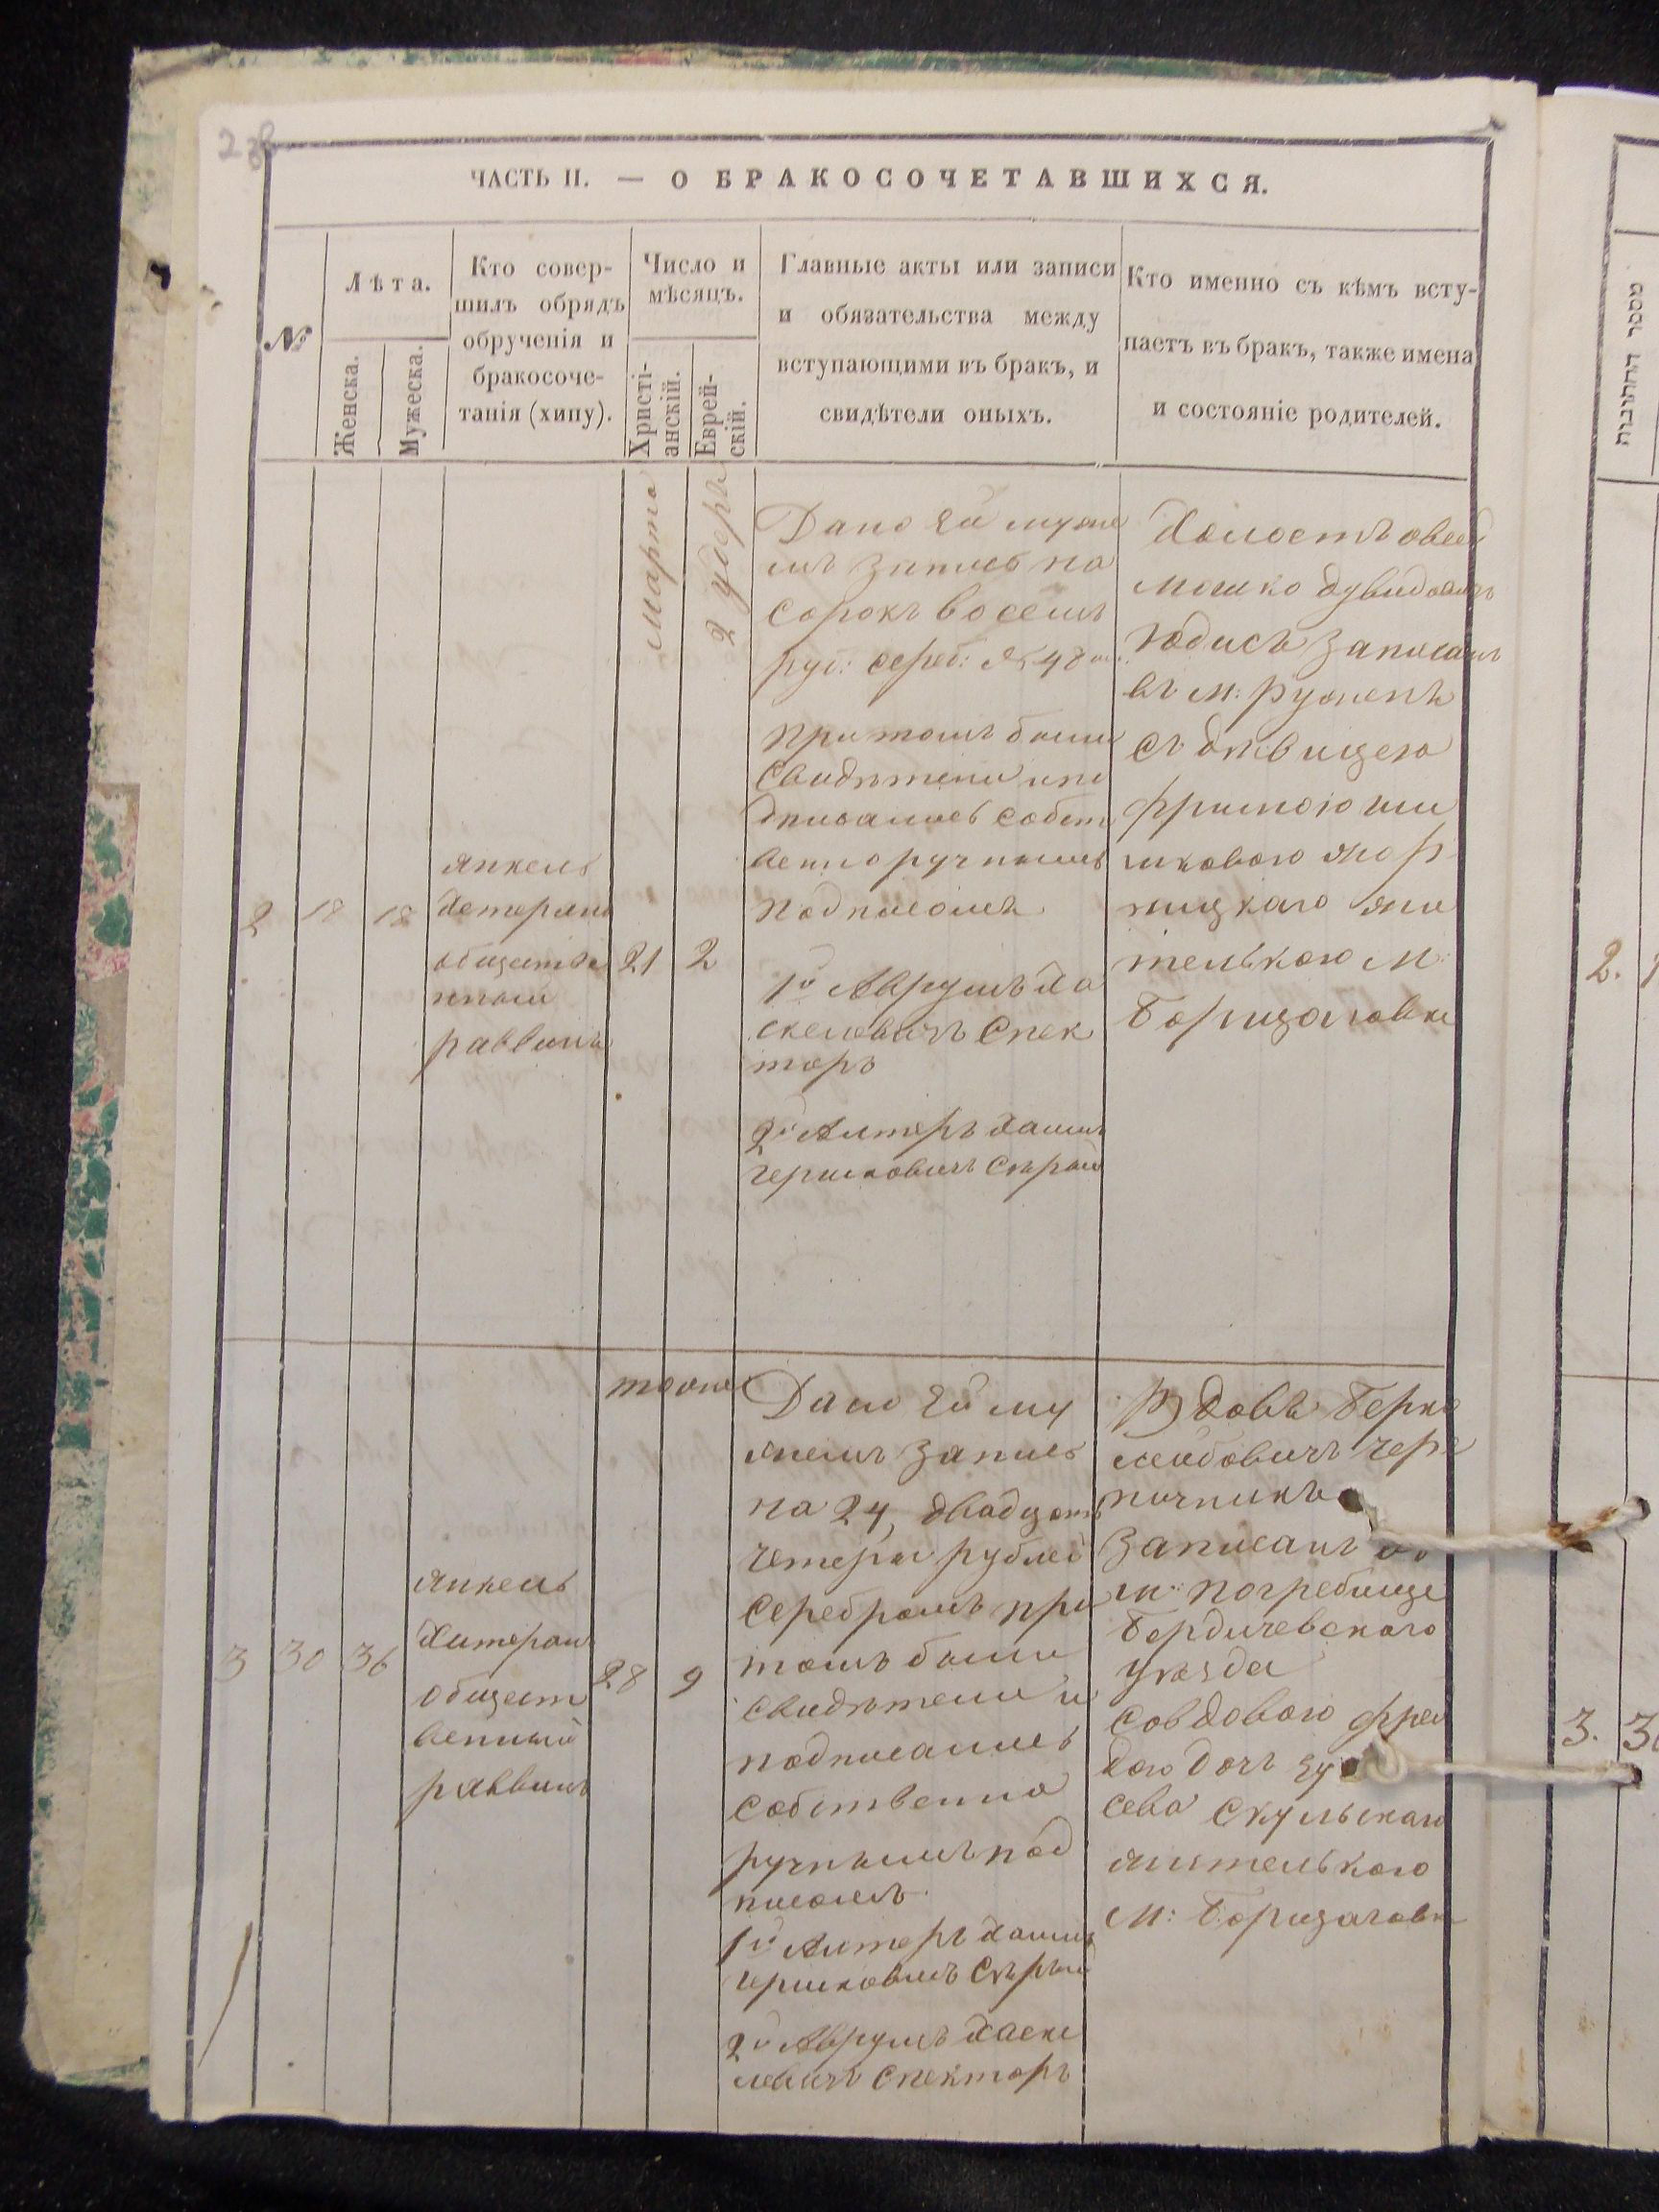 ЧАСТЬ II. — О БРАКОСОЧЕТАВШИХСЯ.
№
Лѣта.
Женска.
Мужеска.
Кто совер-
шилъ обрядъ
обрученія и
бракосоче-
танія (хипу).
Число и
мѣсяцъ.
Христі-
анскій.
Еврей-
скій.
Главные акты или записи
и обязательства между
вступающими въ бракъ, и
свидѣтели оныхъ.
Кто именно съ кѣмъ всту-
паетъ въ бракъ, также имена
и состояніе родителей.
2
18
18
Янкель
обществе
нный
раввинъ
Марта
21
2
2
Дано Ей муже
мъ запись на
сорокъ восемь
руб: сереб: 48
притомъ были
свидѣтели и по
дписались собст
венноручнымъ
подписомъ
1й Аврумъ Ха
скелевичъ Спек
торъ
2й Алтеръ Хаимъ
Гершковичъ Сѣрый
Холостъ
Мошко Дувидовичъ
записанъ
въ м: Руженѣ
съ дѣвицею
Фримою
жи
телькою м:
Борщаговки
3
30
36
Янкель
общест
венный
раввинъ
тоже
28
9
Дано Ей му
жемъ запись
на 24, двадцать
четеры рублей
серебромъ при
томъ были
свидѣтели и
подписались
собственно
ручнымъ под
писомъ.
1й Алтеръ Хаимъ
Гершковичъ Сѣрый
2й Аврумъ Хаске
левичъ Спекторъ
Вдовъ Берко
Лейбовичъ
записанъ въ
м: Погребище
Бердичевского
уѣзда
совдовою
дочъ
Скульскаго
жителькою
м: Борщаговки
מספר החתונות
2.
3.